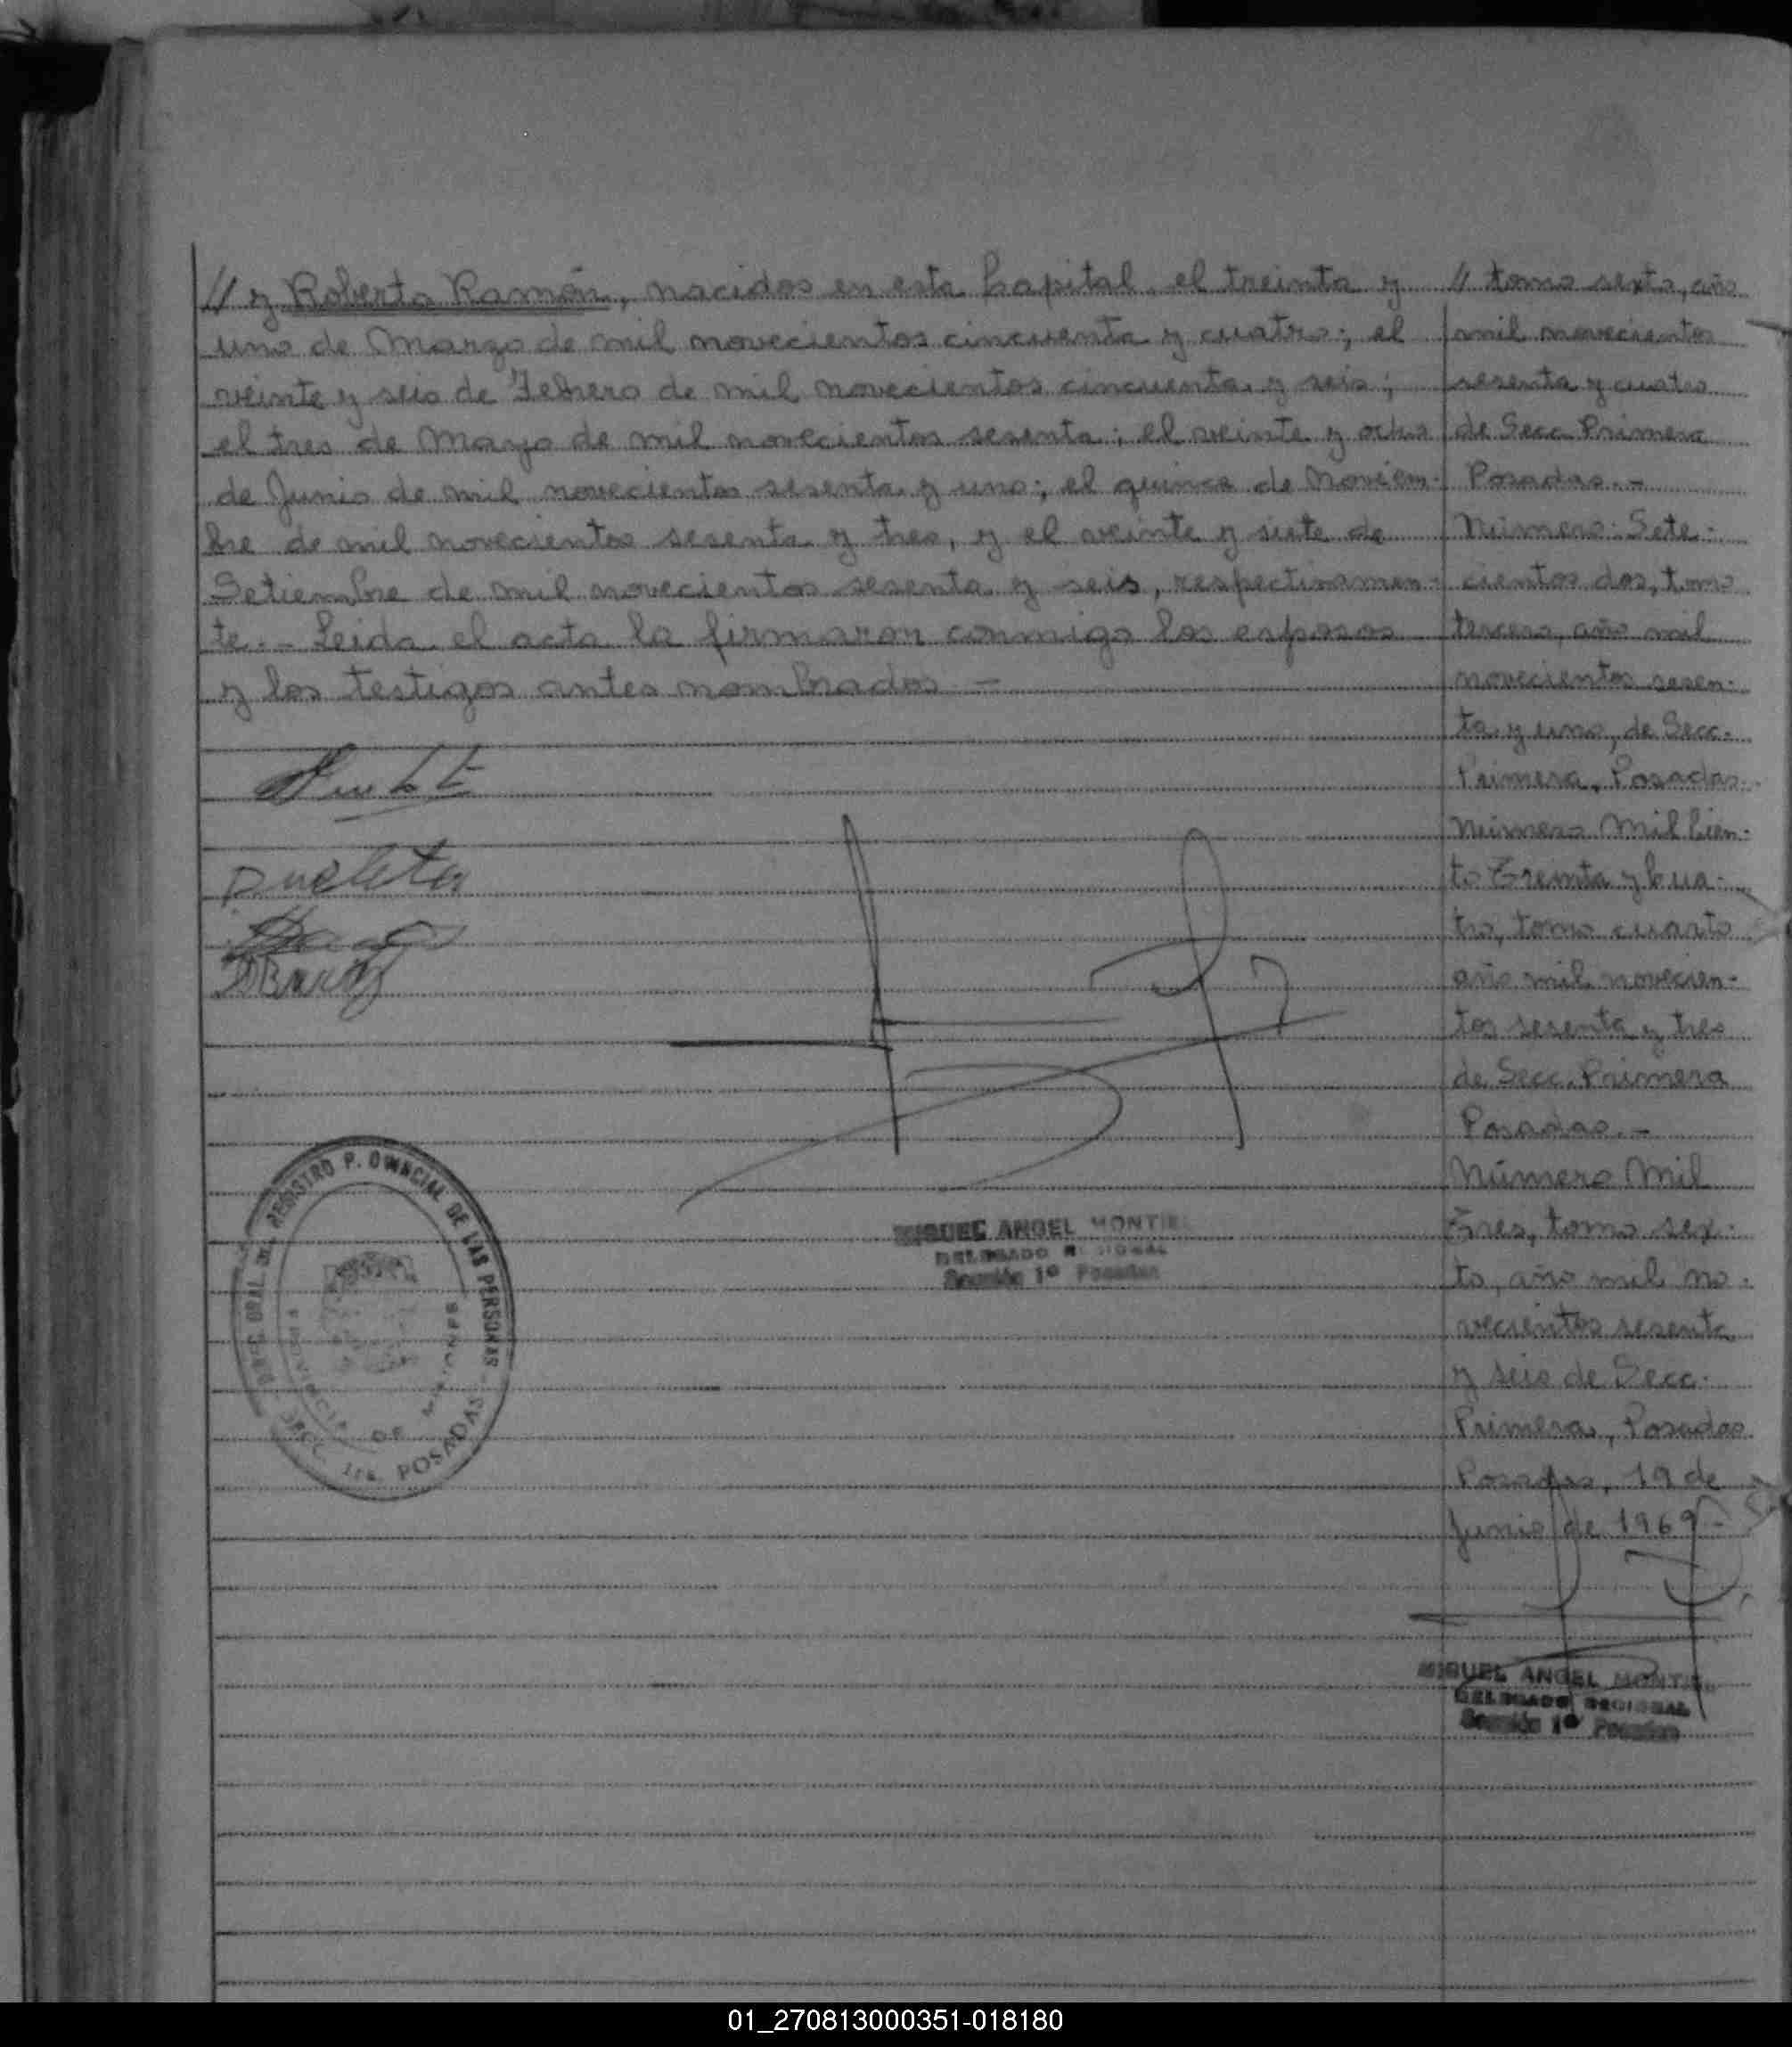 // y Roberto Ramón, nacidos en esta Capital, el treinta y
uno de Marzo de mil novecientos cincuenta y cuatro; el
veinte y seis de Febrero de mil novecientos cincuenta y seis;
el tres de Mayo de mil novecientos sesenta; el veinte y ocho
de Junio de mil novecientos sesenta y uno; el quince de Noviem-
bre de mil novecientos sesenta y tres, y el veinte y siete de
Setiembre de mil novecientos sesenta y seis, respectivamen-
te.- Leida el acta la firmaron conmigo los esposos
y los testigos antes nombrados -
DIREC. GRAL. DEL REGISTRO P. OVINCIAL DE LAS PERSONAS
PROVINCIA DE MISIONES
SECC. 1ra. POSADAS
MIGUEL ANGEL MONTIEL
DELEGADO REGIONAL
Sección 1ª Posadas
// tomo sexto, año
mil novecientos
sesenta y cuatro
de Secc. Primera
Posadas.-
Número: Sete-
cientos dos, tomo
tercero, año mil
novecientos sesen-
ta y uno, de Secc.
Primera, Posadas.
Número Mil Cien-
to Treinta y Cua-
tro, tomo cuarto
año mil novecien-
tos sesenta y tres
de Secc. Primera
Posadas.-
Número Mil
Tres, tomo sex-
to, año mil no-
vecientos sesenta
y seis de Secc.
Primera, Posadas
Posadas, 19 de
Junio de 1969.-
MIGUEL ANGEL MONTIEL
DELEGADO REGIONAL
Sección 1ª Posadas
01_270813000351-018180